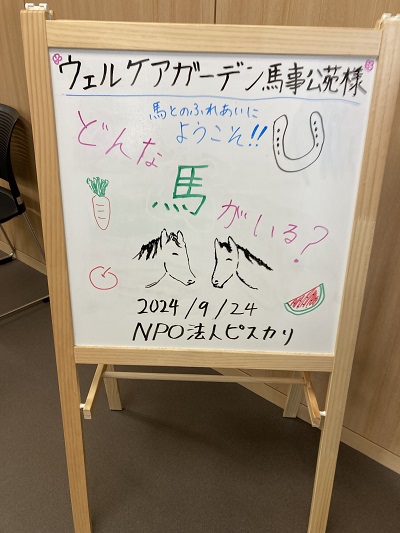 ウェルケアガーデン馬事公苑様
馬とのふれあいに
ようこそ!!
どんな
馬
がいる?
2024/9/24
NPO法人ピスカリ